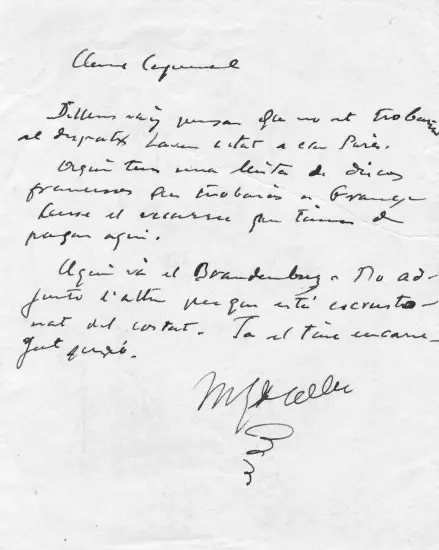 Dilluns vaig pensar que no et trobaria
al despatx havent estat a can París.
Aquí tens una llista de discos
francesos que trobaràs a
sense el que tinc de
pagar aquí.
Aquí va el Brandenburg. No ad-
junto l'altre perquè està escrosto-
nat del costat. Ja el tinc encarre-
gat però.